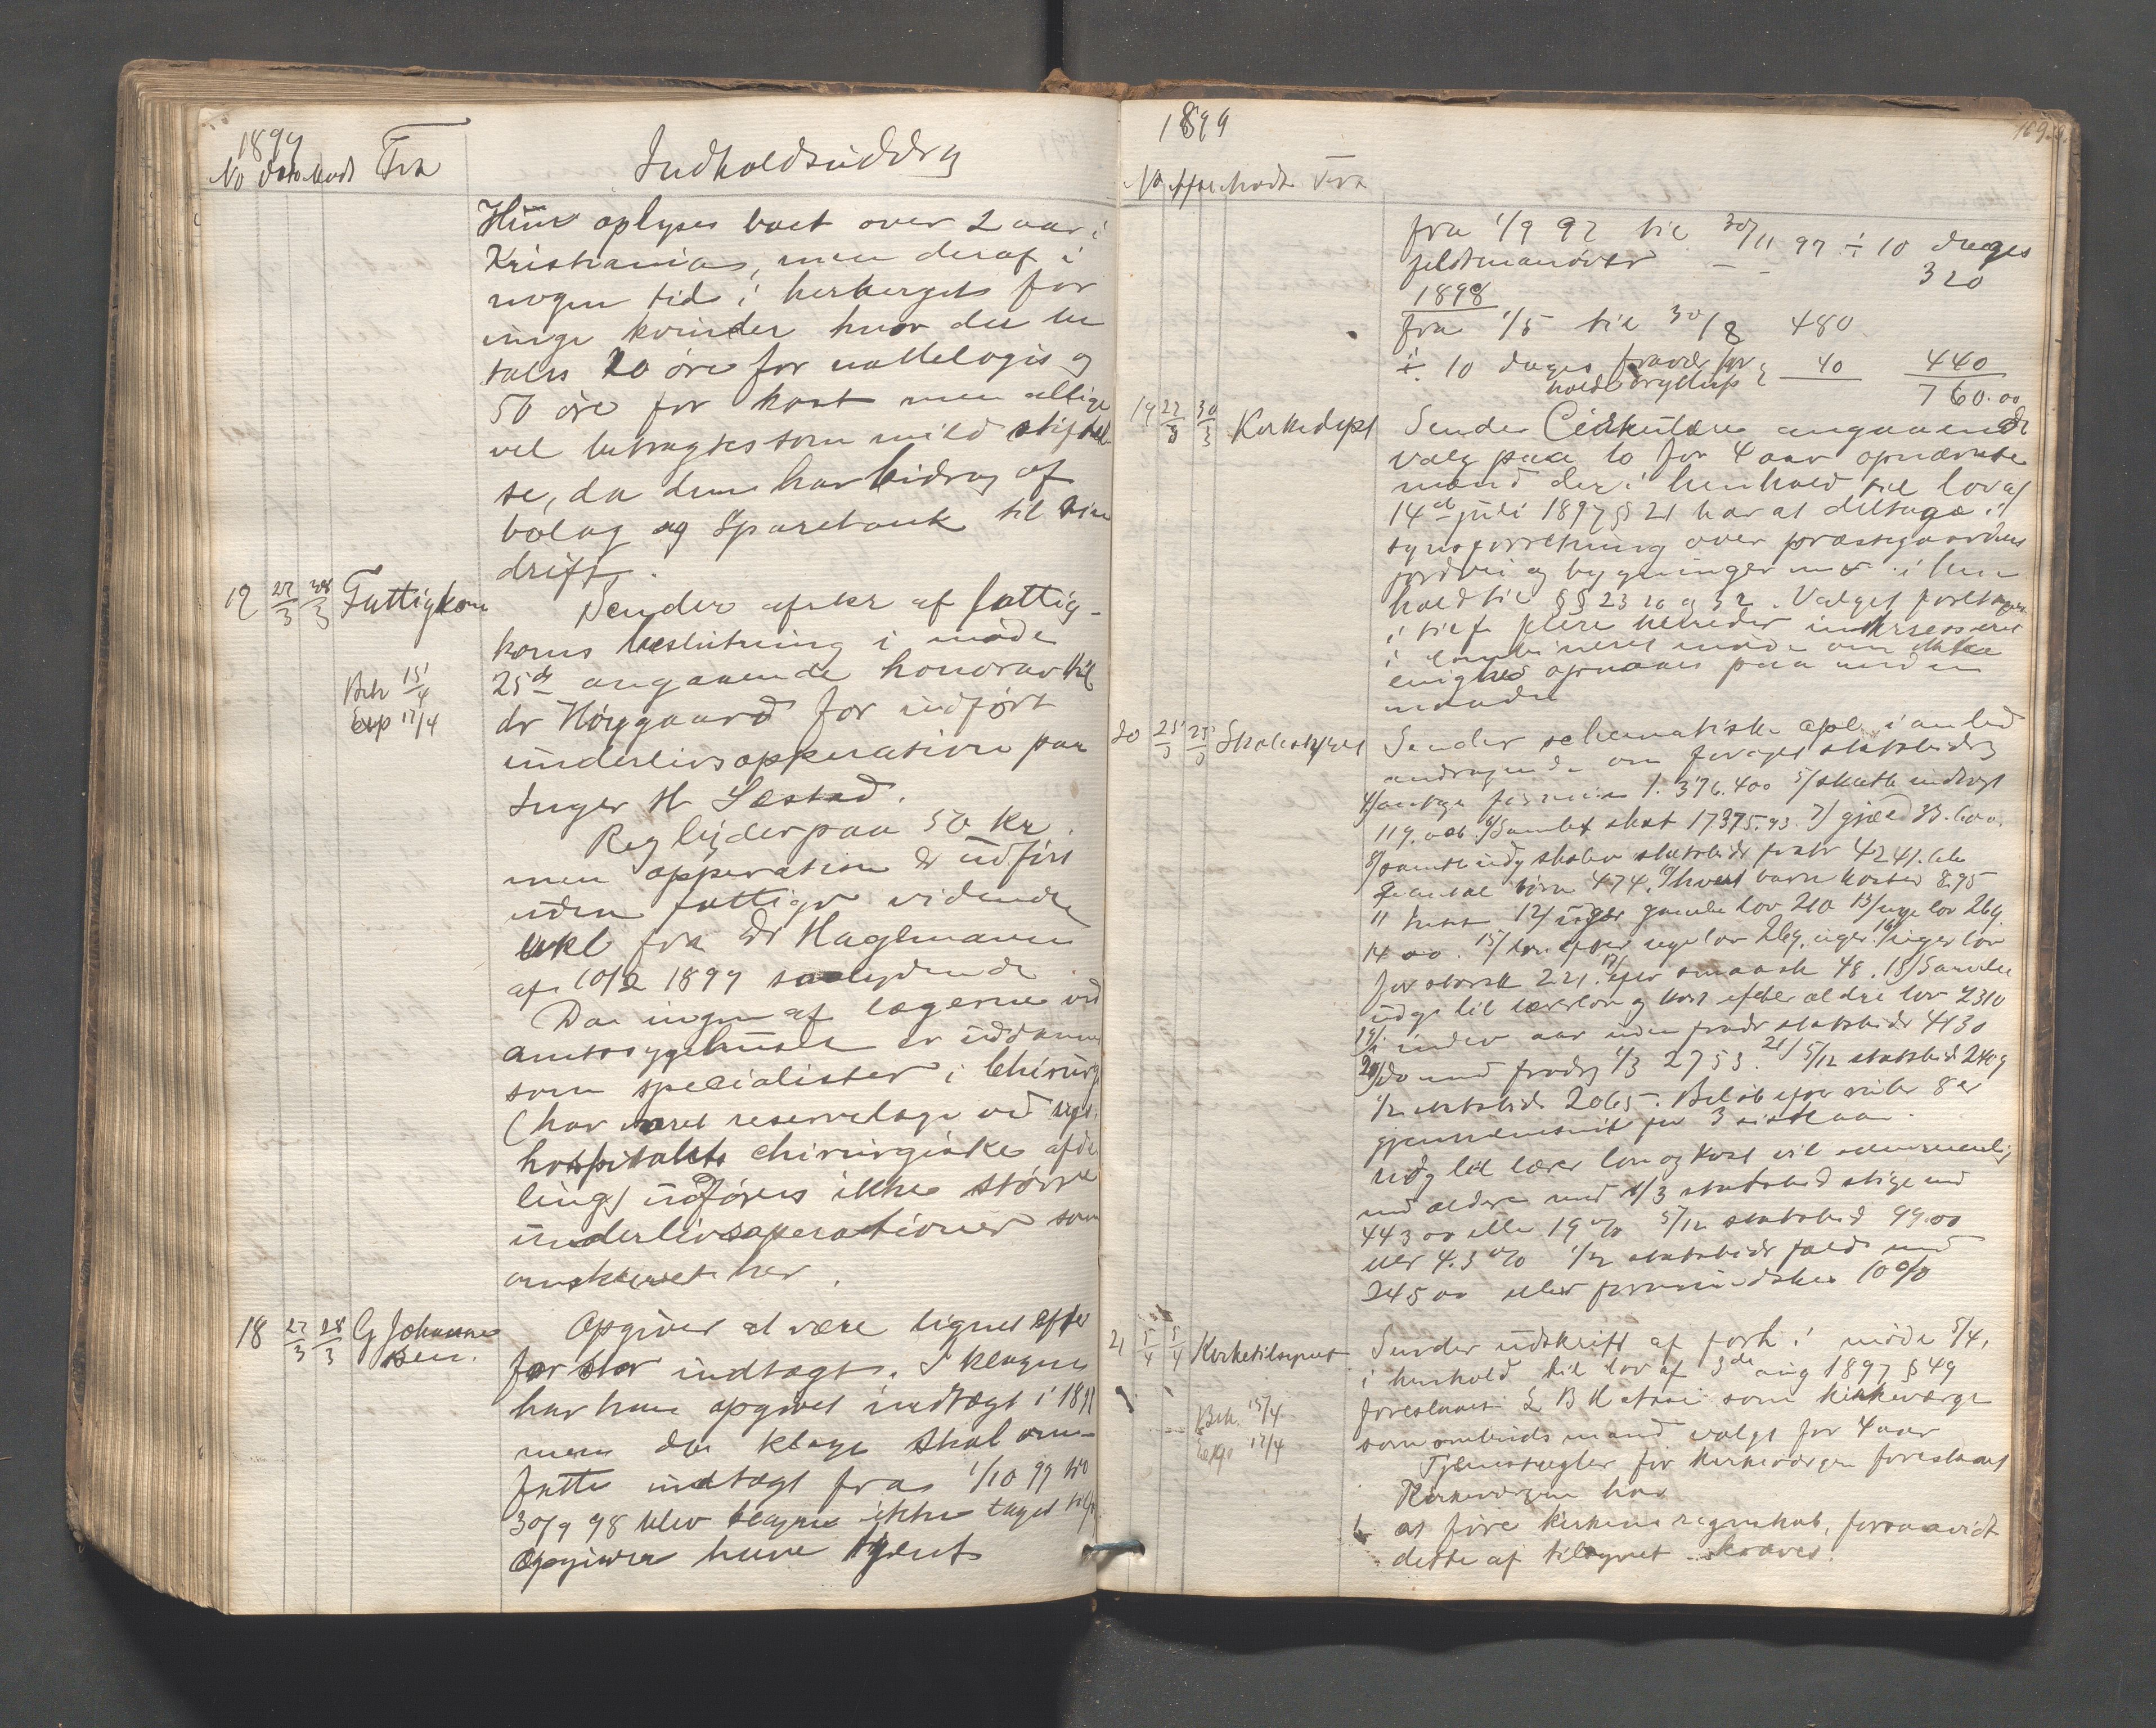 1899
No Dato Modt Fra Indholdsuddrag
Hun oplyses boet over 2 aar i
Kristiania, men deraf i
nogen tid i herberget for
unge kvinder hvor der be
tales 20 øre for nattelogis og
50 øre for kost men allige
vel betragtes som mild stiftel
se, da den har bidrag af
bolag og Sparebank til sin
drift.
19 27/3 28/3 Fattigkom Sender afskr af fattig-
koms beslutning i møde
25de angaaende honorar til
Beh 15/4
Exp 17/4
dr Høygaard for udført
underlivsopperation paa
Inger H Sæstad.
Reg lyder paa 50 kr.
men opperation er udført
uden fattigv vidende
erkl fra Dr Haglmann
af 10/2 1899 saalydende
Da ingen af lægerne ved
amtssygehuset er uddannet
som specialister i chirurgi
(har været reservelæge ved rigs
hospitalets chirurgiske afde
ling) udføres ikke større
underlivsoperationer som
ønskeret her.
18 27/3 28/3 G Johannes
sen.
Opgiver at være lignet efter
for stor indtægt. I klagen
har han opgivet indtægt i 1898
men da klage skal om-
fatte indtægt fra 1/10 97 til
30/9 98 blev klagen ikke taget tilf
Opgiver have tjent
1899
No Modt Fra
fra 1/9 97 til 30/11 97 ÷ 10 dages
feldtmanøvre 320
1898
fra 1/5 til 30/8 480
÷ 10 dages fravær for 40 440
760.00
19 27/3 30/3 Kirkedept Sender Cirkulære angaaende
valg paa to for 4 aar opnævnte
mænd der i henhold til lov af
14de juli 1897 § 21 har at deltage i
synsforretning over præstegaardens
jordvei og bygninger i hen
hold til §§ 23 og 32. Valget foretages
i tilf flere herreder interesseret
i kombineret møde om ikke
enighed opnaaes paa anden
maade
20 25/3 25/3 Skolestyret Sender schematisk opl i anled
andragende om forøget statsbidrag
4/ antge formue 1.376.400 5/ skatb indtægt
119.000 6/ Samlet skat 17375.93 7/ gjæld 33.600.
8/ samlede udg skolev statsbidr fradr 4241.
9 antal børn 474. 10/ hvert barn kosted 8.95
11 12/ uger gamle lov 210 13/ nye lov 269.
14 00. 15/ efter nye lov 269. uger 16/ uger lov
for storsk 221. 17/ efter smaask 48. 18/ Samlede
udgi til lærerløn og kost efter ældre lov 2310
19/ under aar uden fradr statsbidr 4130
20/ do med fradrg 1/3 2753. 21/ 5/12 statsbid 2409
1/2 statsbidr 2065. Beløb efter 8 er
gjennemsnit for 3 siste aar.
udg til lærer løn og kost vil
med ældre med 1/3 statsbid stige med
443 00 eller 19 % 5/12 statsbid 99.00
eller 4.3 % 1/2 statsbidr fald med
245 00 eller formindskes 10 %
21 5/4 5/4 Kirketilsynet Sender udskrift af forh i møde 5/4,
i henhold til lov af 3de aug 1897 § 49
Beh. 15/4
Exp 17/4
foreslaaes som kirkeværge
som ombuds mand valgt for 4 aar
Tjenstregler for kirkeværgen foreslaaet
Kirkeværgen har
1 at føre kirkens regnskab, forsaavidt
dette af tilsynet kræves.